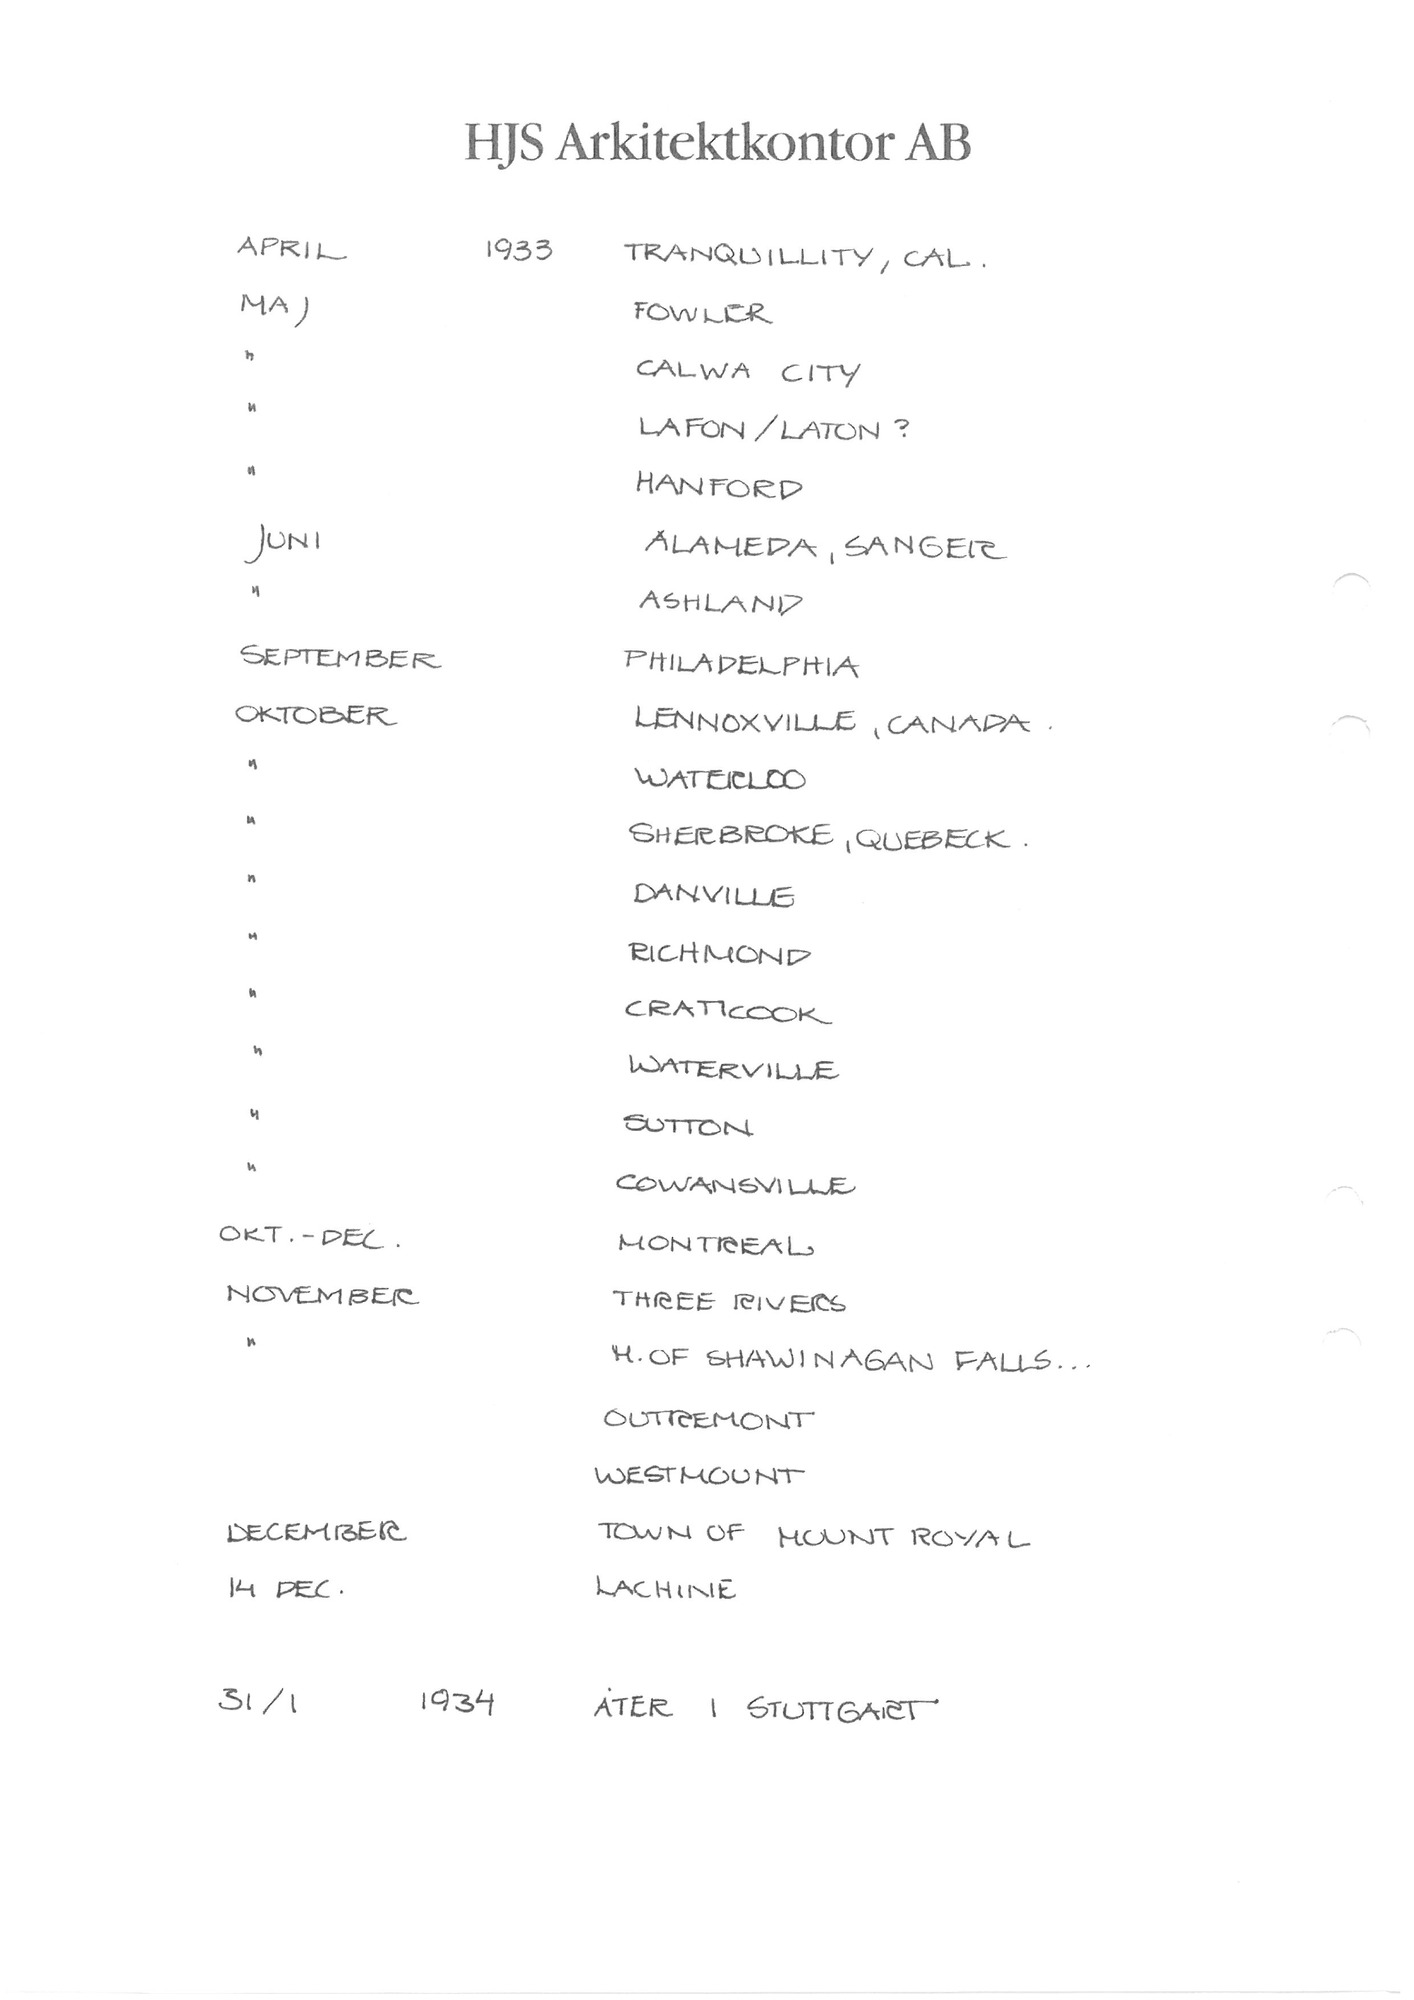 HJS Arkitektkontor AB
APRIL 1933 TRANQUILLITY, CAL.
MAJ FOWLER
" CALWA CITY
" LAFON/LATON?
" HANFORD
JUNI ALAMEDA, SANGER
" ASHLAND
SEPTEMBER PHILADELPHIA
OKTOBER LENNOXVILLE, CANADA.
" WATERLOO
" SHERBROKE, QUEBECK.
" DANVILLE
" RICHMOND
" CRATICOOK
" WATERVILLE
" SUTTON
" COWANSVILLE
OKT.-DEC. MONTREAL
NOVEMBER THREE RIVERS
" H. OF SHAWINAGAN FALLS...
OUTREMONT
WESTMOUNT
DECEMBER TOWN OF MOUNT ROYAL
14 DEC. LACHINE
31/1 1934 ÅTER I STUTTGART